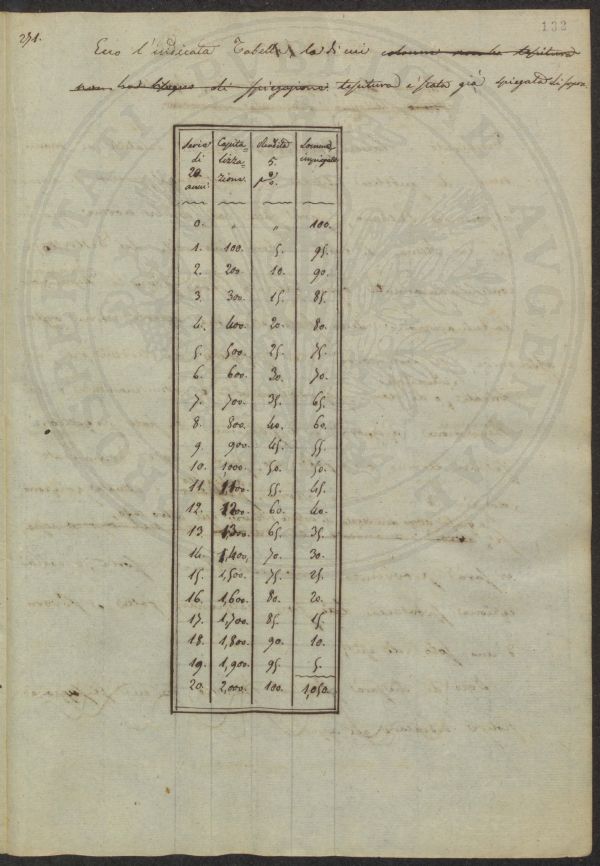 132
271.
Ecco l'indicata Tabella, la di cui colonna non ha tessitura
non ha bisogno di spiegazione tessitura è stata già spiegata di sopra.
Serie di 20. anni: | Capitalizzazione. | Rendita 5. p% | Somma impiegata
0. | " | " | 100.
1. | 100. | 5. | 95.
2. | 200 | 10. | 90.
3. | 300. | 15. | 85.
4. | 400. | 20. | 80.
5. | 500. | 25. | 75.
6. | 600. | 30. | 70.
7. | 700. | 35. | 65.
8. | 800. | 40. | 60.
9. | 900. | 45. | 55.
10. | 1,000. | 50. | 50.
11. | 1,100. | 55. | 45.
12. | 1200. | 60. | 40.
13. | 1,300. | 65. | 35.
14. | 1,400. | 70. | 30.
15. | 1,500. | 75. | 25.
16. | 1,600. | 80. | 20.
17. | 1,700. | 85. | 15.
18. | 1,800. | 90. | 10.
19. | 1,900. | 95. | 5.
20. | 2,000. | 100. | 1,050.